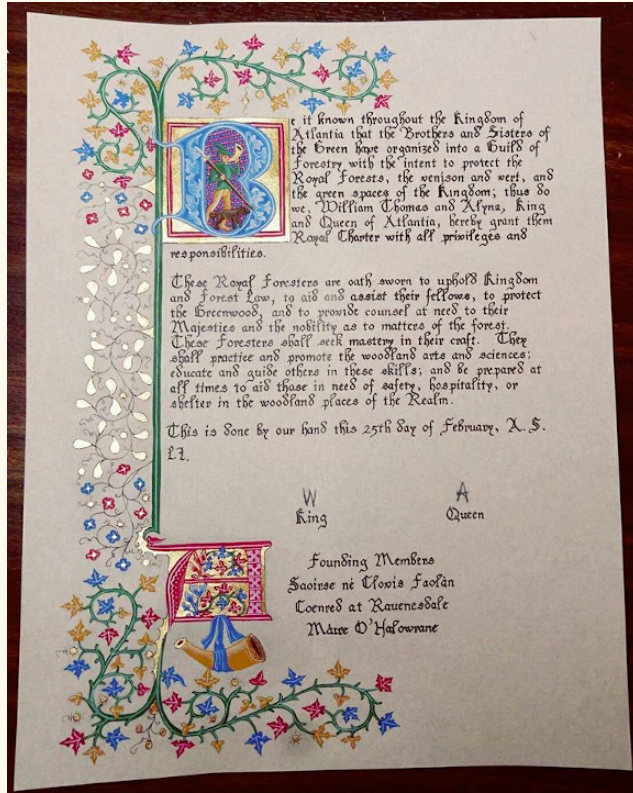 Be it known throughout the Kingdom of
Atlantia that the Brothers and Sisters of
the Green have organized into a Guild of
Forestry with the intent to protect the
Royal Forests, the venison and vert, and
the green spaces of the Kingdom; thus do
we, William Thomas and Alyna, King
and Queen of Atlantia, hereby grant them
Royal Charter with all privileges and
responsibilities.
These Royal Foresters are oath sworn to uphold Kingdom
and Forest Law, to aid and assist their fellows, to protect
the Greenwood, and to provide counsel at need to their
Majesties and the nobility as to matters of the forest.
These Foresters shall seek mastery in their craft. They
shall practice and promote the woodland arts and sciences;
educate and guide others in these skills; and be prepared at
all times to aid those in need of safety, hospitality, or
shelter in the woodland places of the Realm.
This is done by our hand this 25th day of February, A. S.
LI.
W A
King Queen
Founding Members
Saoirse nè Clovis Faolàn
Coenred at Rauenesdale
Màire O'Halowrane